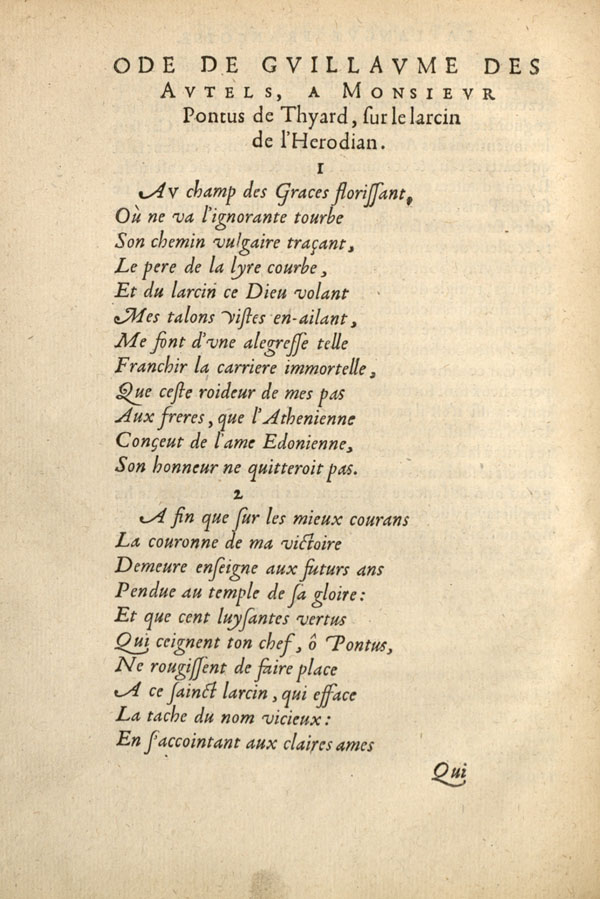 ODE DE GVILLAVME DES
AVTELS, A MONSIEVR
Pontus de Thyard, ſur le larcin
de l'Herodian.
1
Av champ des Graces floriſſant,
Où ne va l'ignorante tourbe
Son chemin vulgaire traçant,
Le pere de la lyre courbe,
Et du larcin ce Dieu volant
Mes talons viſtes en-ailant,
Me font d'vne alegreſſe telle
Franchir la carriere immortelle,
Que ceſte roideur de mes pas
Aux freres, que l'Athenienne
Conçeut de l'ame Edonienne,
Son honneur ne quitteroit pas.
2
A fin que ſur les mieux courans
La couronne de ma victoire
Demeure enſeigne aux futurs ans
Pendue au temple de ſa gloire:
Et que cent luyſantes vertus
Qui ceignent ton chef, ô Pontus,
Ne rougiſſent de faire place
A ce ſainct larcin, qui efface
La tache du nom vicieux:
En ſ'accointant aux claires ames
Qui